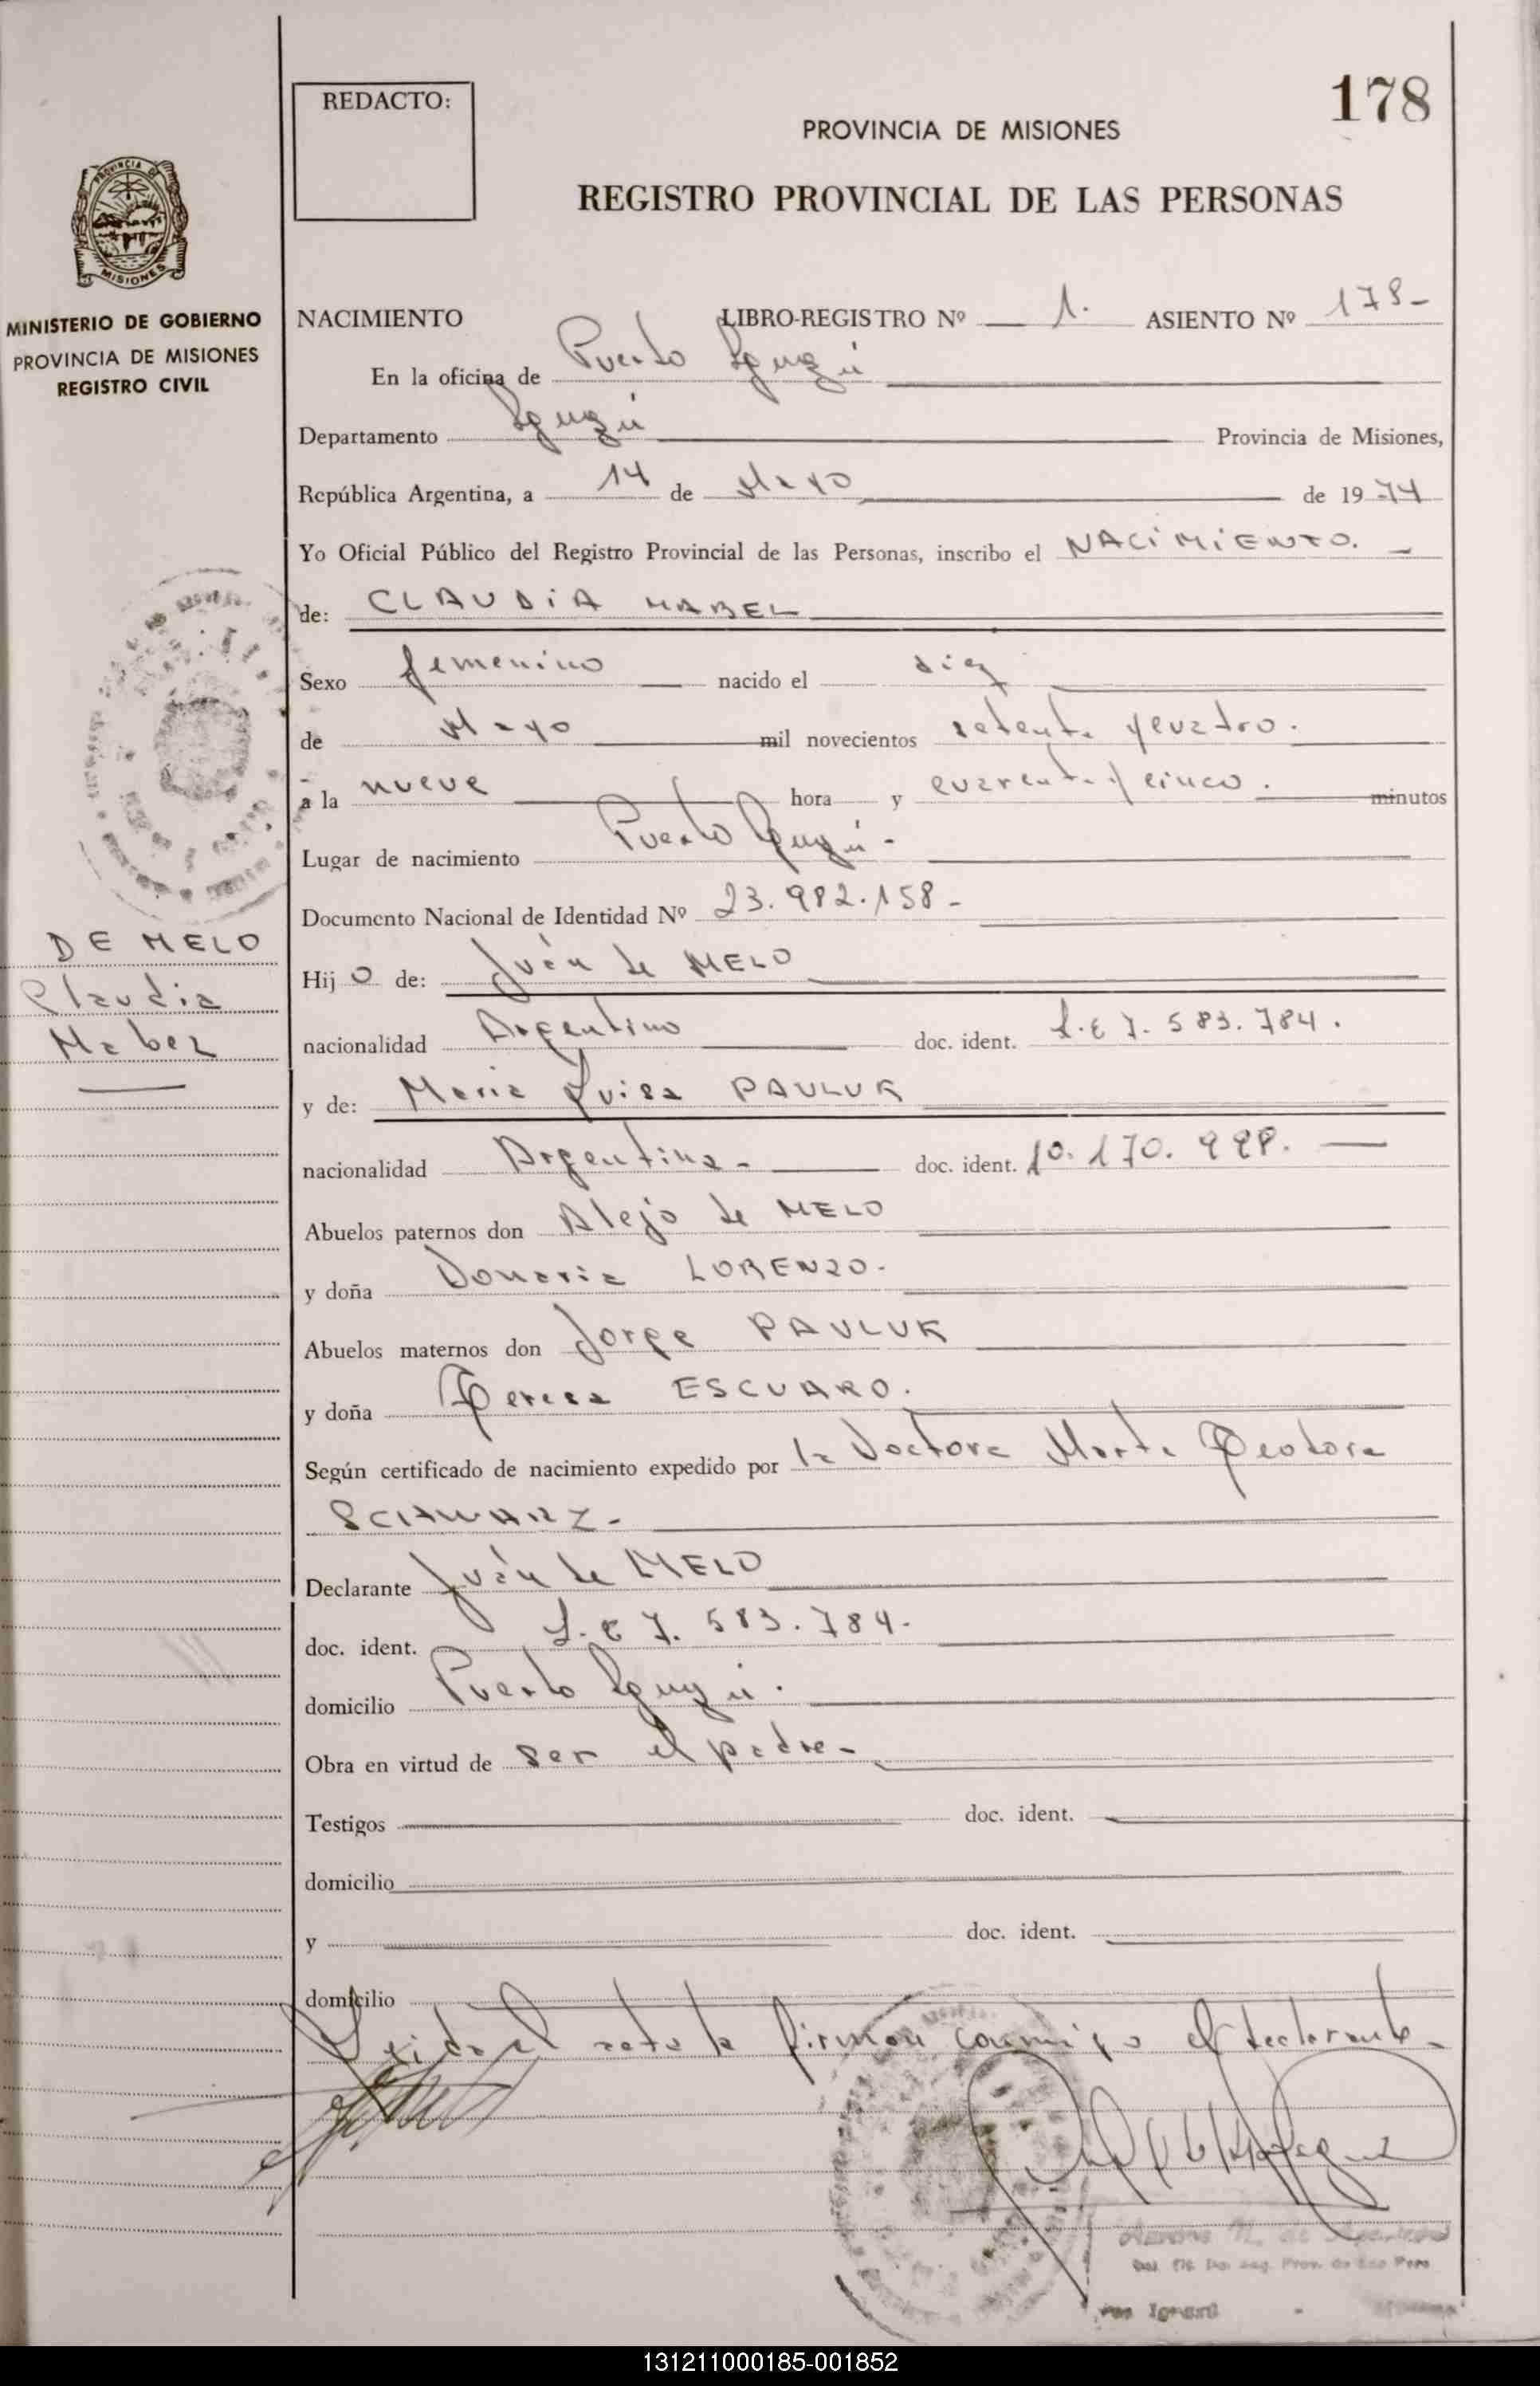 178
REDACTO:
PROVINCIA DE MISIONES
REGISTRO PROVINCIAL DE LAS PERSONAS
PROVINCIA
MISIONES
MINISTERIO DE GOBIERNO
PROVINCIA DE MISIONES
REGISTRO CIVIL
NACIMIENTO LIBRO-REGISTRO Nº 1. ASIENTO Nº 178-
En la oficina de Puerto Iguazú
Departamento Iguazú Provincia de Misiones,
República Argentina, a 14 de Mayo de 1974
Yo Oficial Público del Registro Provincial de las Personas, inscribo el NACIMIENTO.
de: CLAUDIA MABEL
Sexo femenino nacido el diez
de Mayo mil novecientos setenta y cuatro.
a la nueve hora y cuarenta y cinco. minutos
Lugar de nacimiento Puerto Iguazú-
Documento Nacional de Identidad Nº 23.982.158-
DE MELO
Claudia
Mabel
Hijo de: Juán de MELO
nacionalidad Argentino doc. ident. L.E 7.583.784.
y de: María Luisa PAULUK
nacionalidad Argentina- doc. ident. 10.170.998.
Abuelos paternos don Alejo de MELO
y doña Donaria LORENZO-
Abuelos maternos don Jorge PAULUK
y doña Teresa ESCUARO.
Según certificado de nacimiento expedido por la Doctora Marta Teodora
SCHWARZ-
Declarante Juán de MELO
doc. ident. L.E 7.583.784-
domicilio Puerto Iguazú.
Obra en virtud de ser el padre-
Testigos doc. ident.
domicilio
y doc. ident.
domicilio
Leida el acta la firman conmigo el declarante-
131211000185-001852